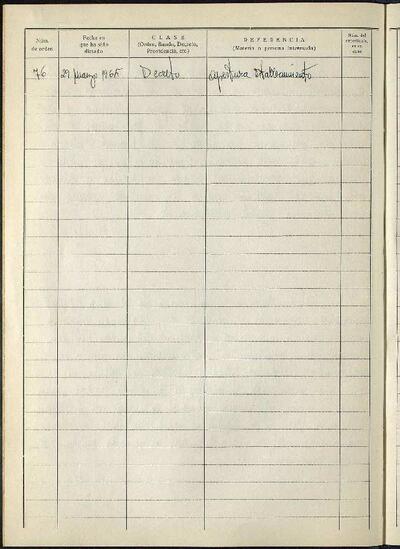 Núm. de orden
Fecha en que ha sido dictado
CLASE
(Orden, Bando, Decreto, Providencia, etc.)
REFERENCIA
(Materia o persona interesada)
Núm. del
76 29 marzo 1965 Decreto apertura establecimiento